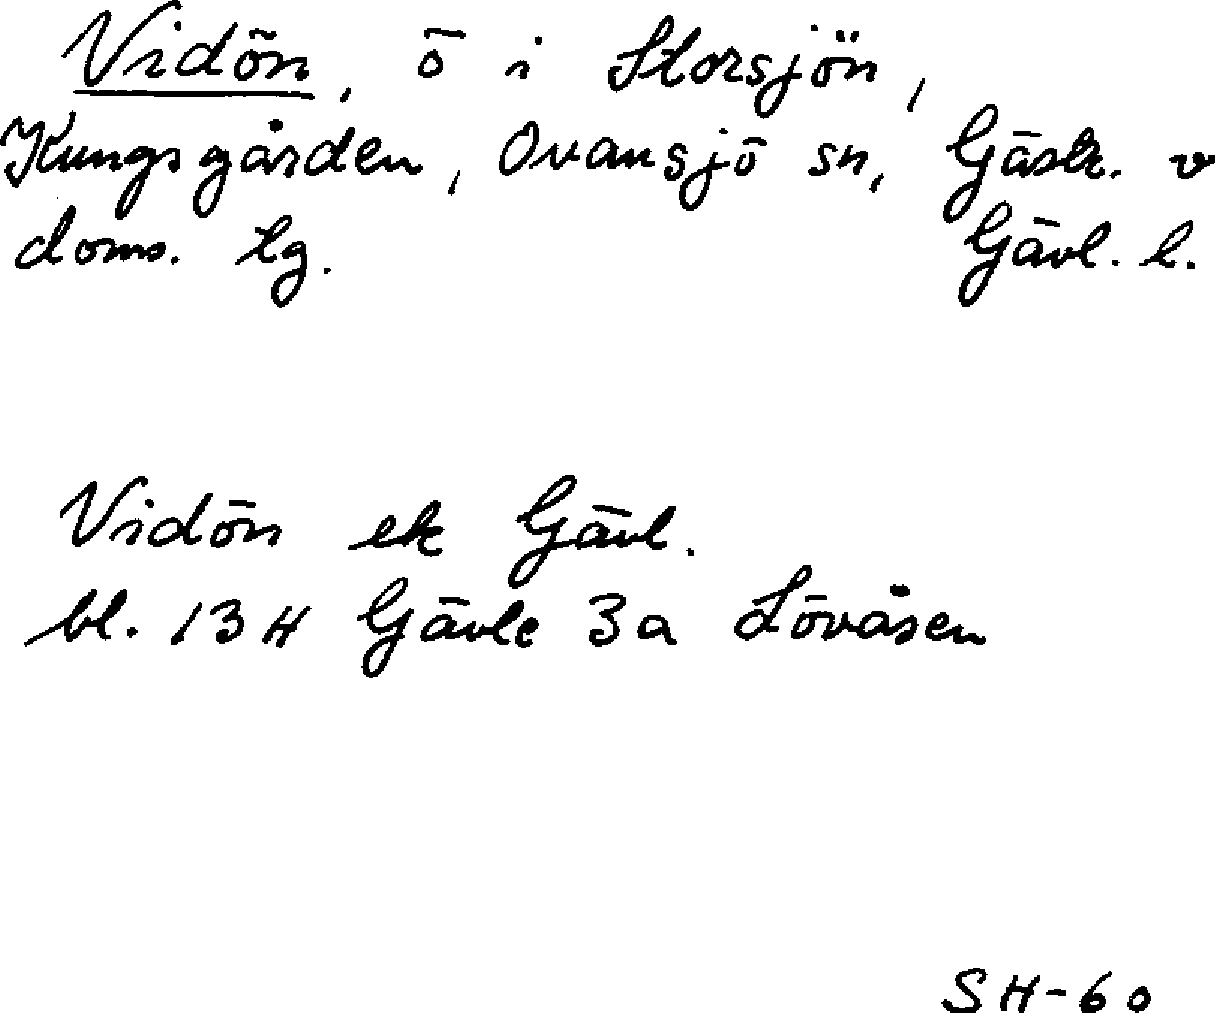 Vidön, ö i Storsjön,
Kungsgården, Ovansjö sn, Gästr. v
doms. tg. Gävl. l.
Vidön ek Gävl.
bl. 13 H Gävle 3a Lövåsen
SH-60